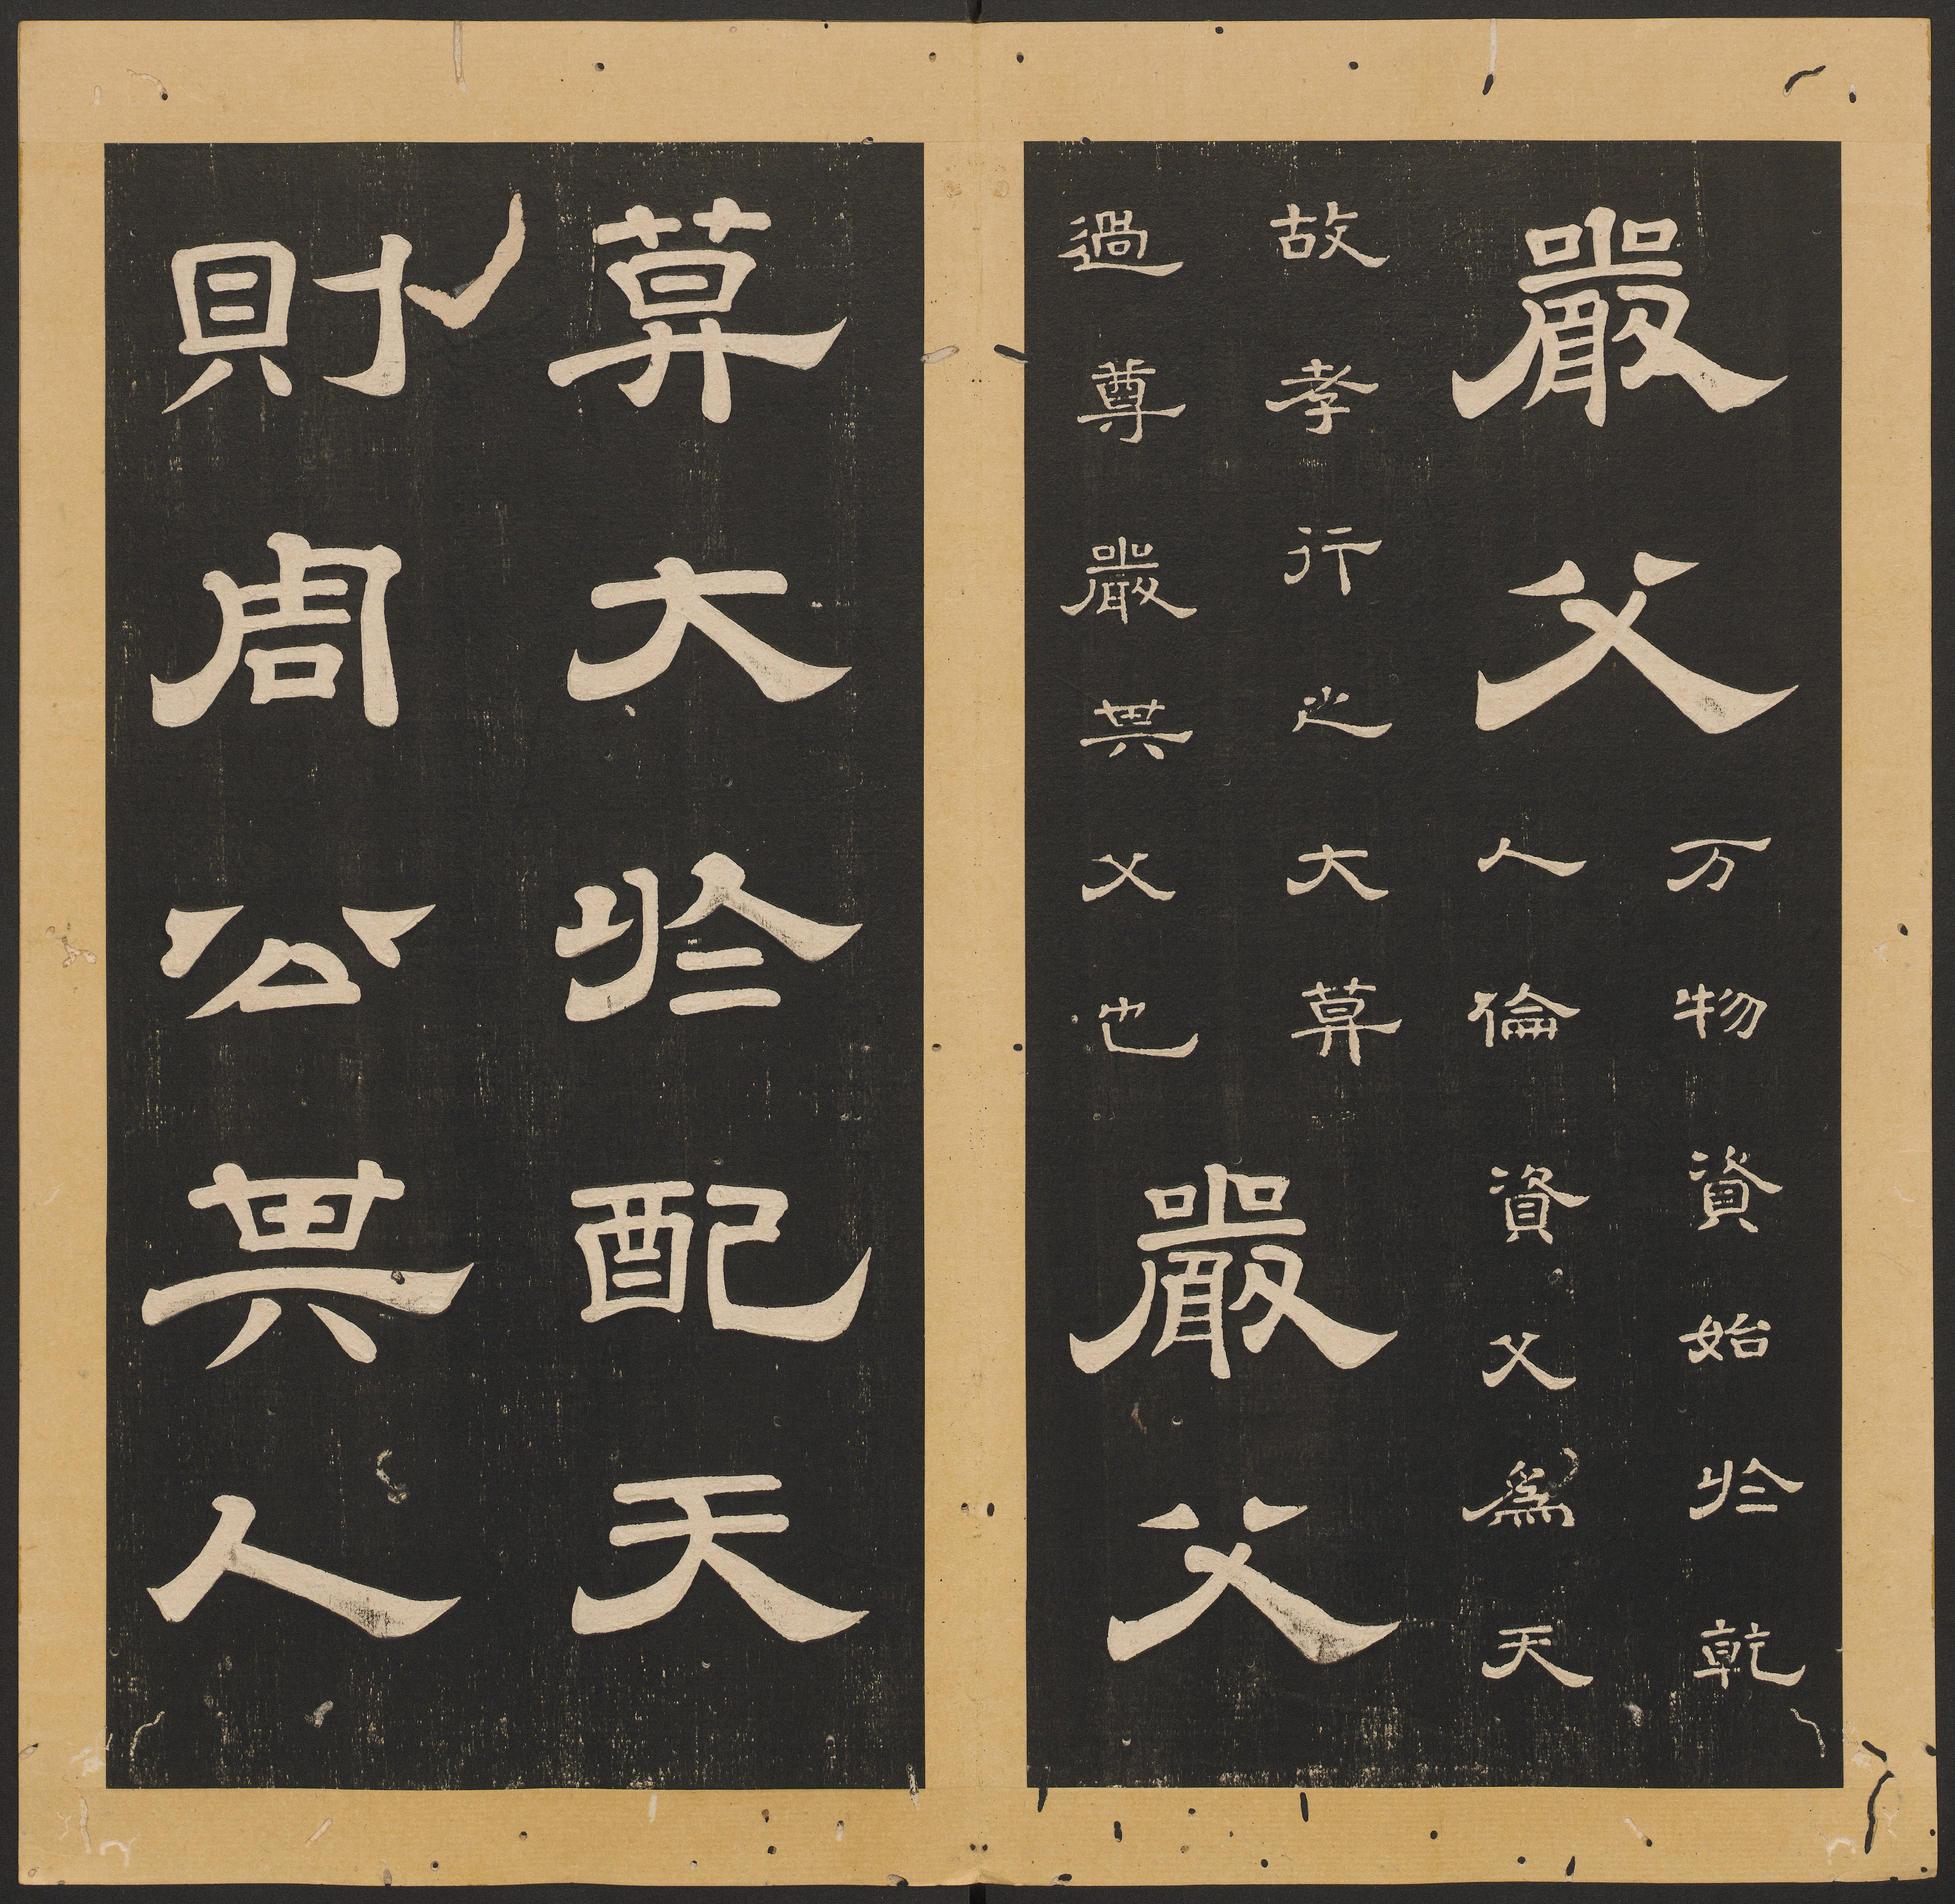 嚴父
万物資始於乾
人倫資父爲天
故孝行之大莫
過尊嚴其父也
嚴父
莫大於配天
則周公其人